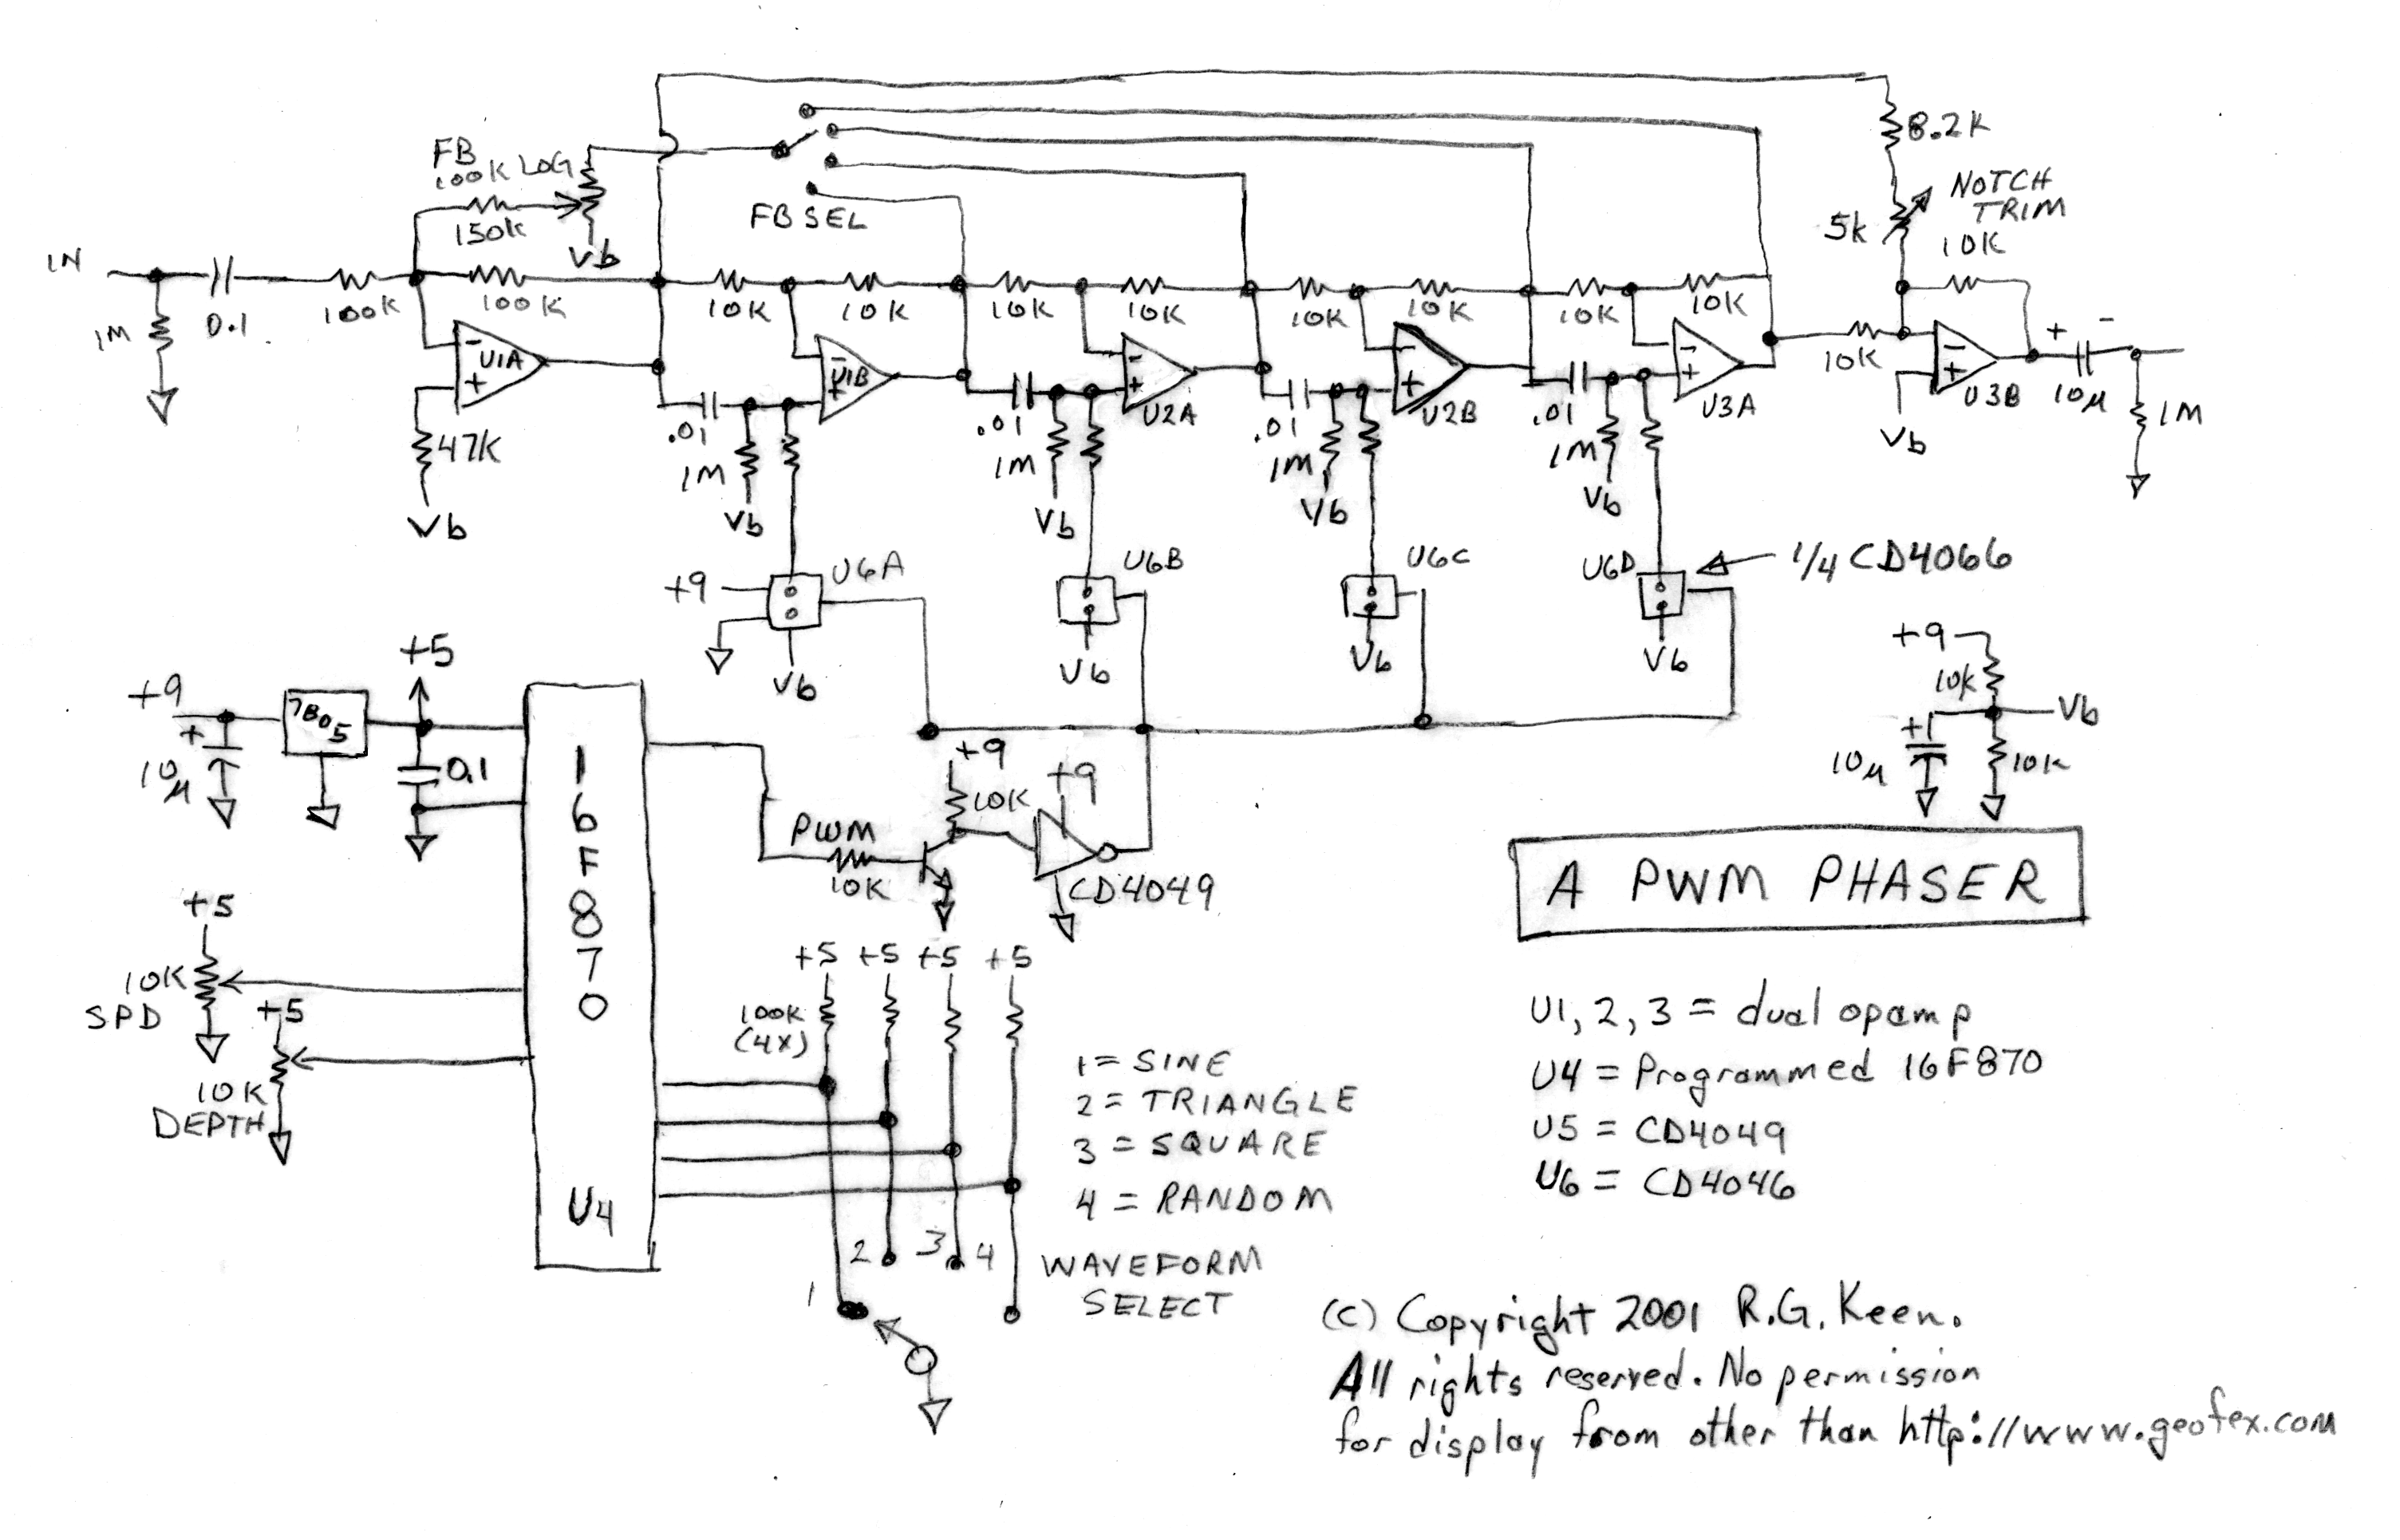 8.2K
FB
100K LOG
NOTCH
TRIM
5k
10K
150K
FB SEL
Vb
IN
1M
0.1
100K
100K
10K
10K
10K
10K
10K
10K
10K
10K
10K
+ -
U1A
U1B
U2A
U2B
U3A
U3B
10µ
1M
- +
- +
- +
- +
- +
- +
47K
.01
.01
.01
.01
1M
1M
1M
1M
Vb
Vb
Vb
Vb
Vb
Vb
U6A
U6B
U6C
U6D
1/4 CD4066
+9
Vb
Vb
Vb
Vb
+9
10K
Vb
+
10µ
10K
+5
+9
7805
+
10µ
0.1
16F870
U4
+9
10K
+9
PWM
10K
CD4049
A PWM PHASER
+5
10K
SPD
+5
10K
DEPTH
+5 +5 +5 +5
100K
(4X)
1 = SINE
2 = TRIANGLE
3 = SQUARE
4 = RANDOM
1 2 3 4
WAVEFORM
SELECT
U1, 2, 3 = dual opamp
U4 = Programmed 16F870
U5 = CD4049
U6 = CD4046
(c) Copyright 2001 R.G. Keen.
All rights reserved. No permission
for display from other than http://www.geofex.com